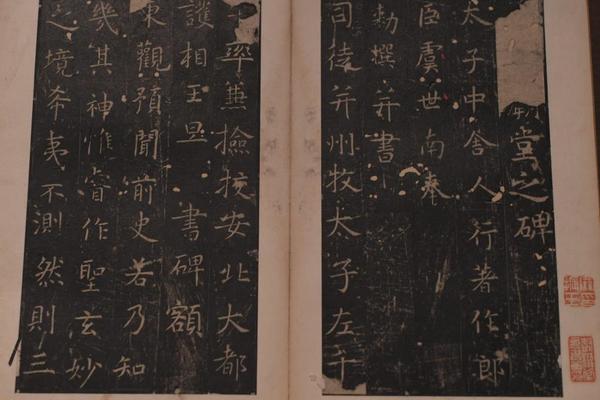 堂之碑
太子中舍人行著作郎
臣虞世南奉
勅撰并書
司徒并州牧太子左千
率兼撿挍安北大都
護相王旦書碑額
東觀預聞前史若乃知
幾其神惟睿作聖玄妙
之境希夷不測然則三